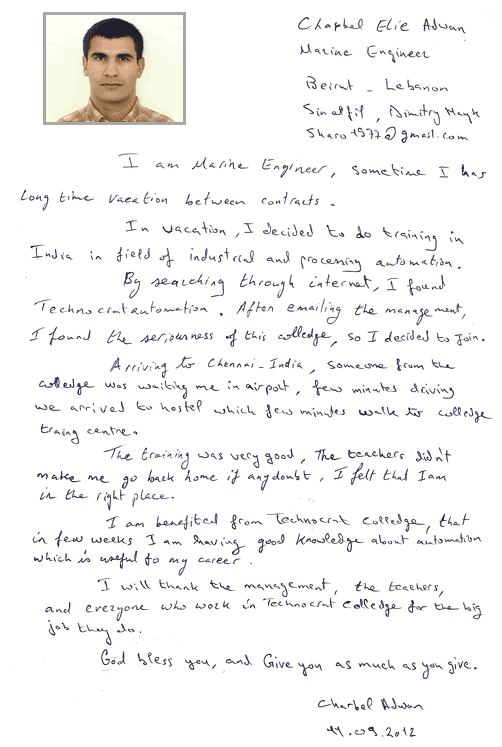 Charbel Elie Adwan
Marine Engineer
Beirut - Lebanon
Sin elfil, Dimitry Hayk
Sharo1977@gmail.com
I am Marine Engineer, sometime I has
long time vacation between contracts.
In vacation, I decided to do training in
India in field of industrial and processing automation.
By searching through internet, I found
Technocratautomation. After emailing the management,
I found the seriousness of this colledge, so I decided to Join.
Arriving to Chennai-India, someone from the
colledge was waiting me in airport, few minutes driving
we arrived to hostel which few minutes walk to colledge
traing centre.
The training was very good, The teachers didn't
make me go back home if any doubt, I felt that I am
in the right place.
I am benefited from Technocrat colledge, that
in few weeks I am having good knowledge about automation
which is useful to my career.
I will thank the management, the teachers,
and everyone who work in Technocrat colledge for the big
job they do.
God bless you, and Give you as much as you give.
Charbel Adwan
11.09.2012